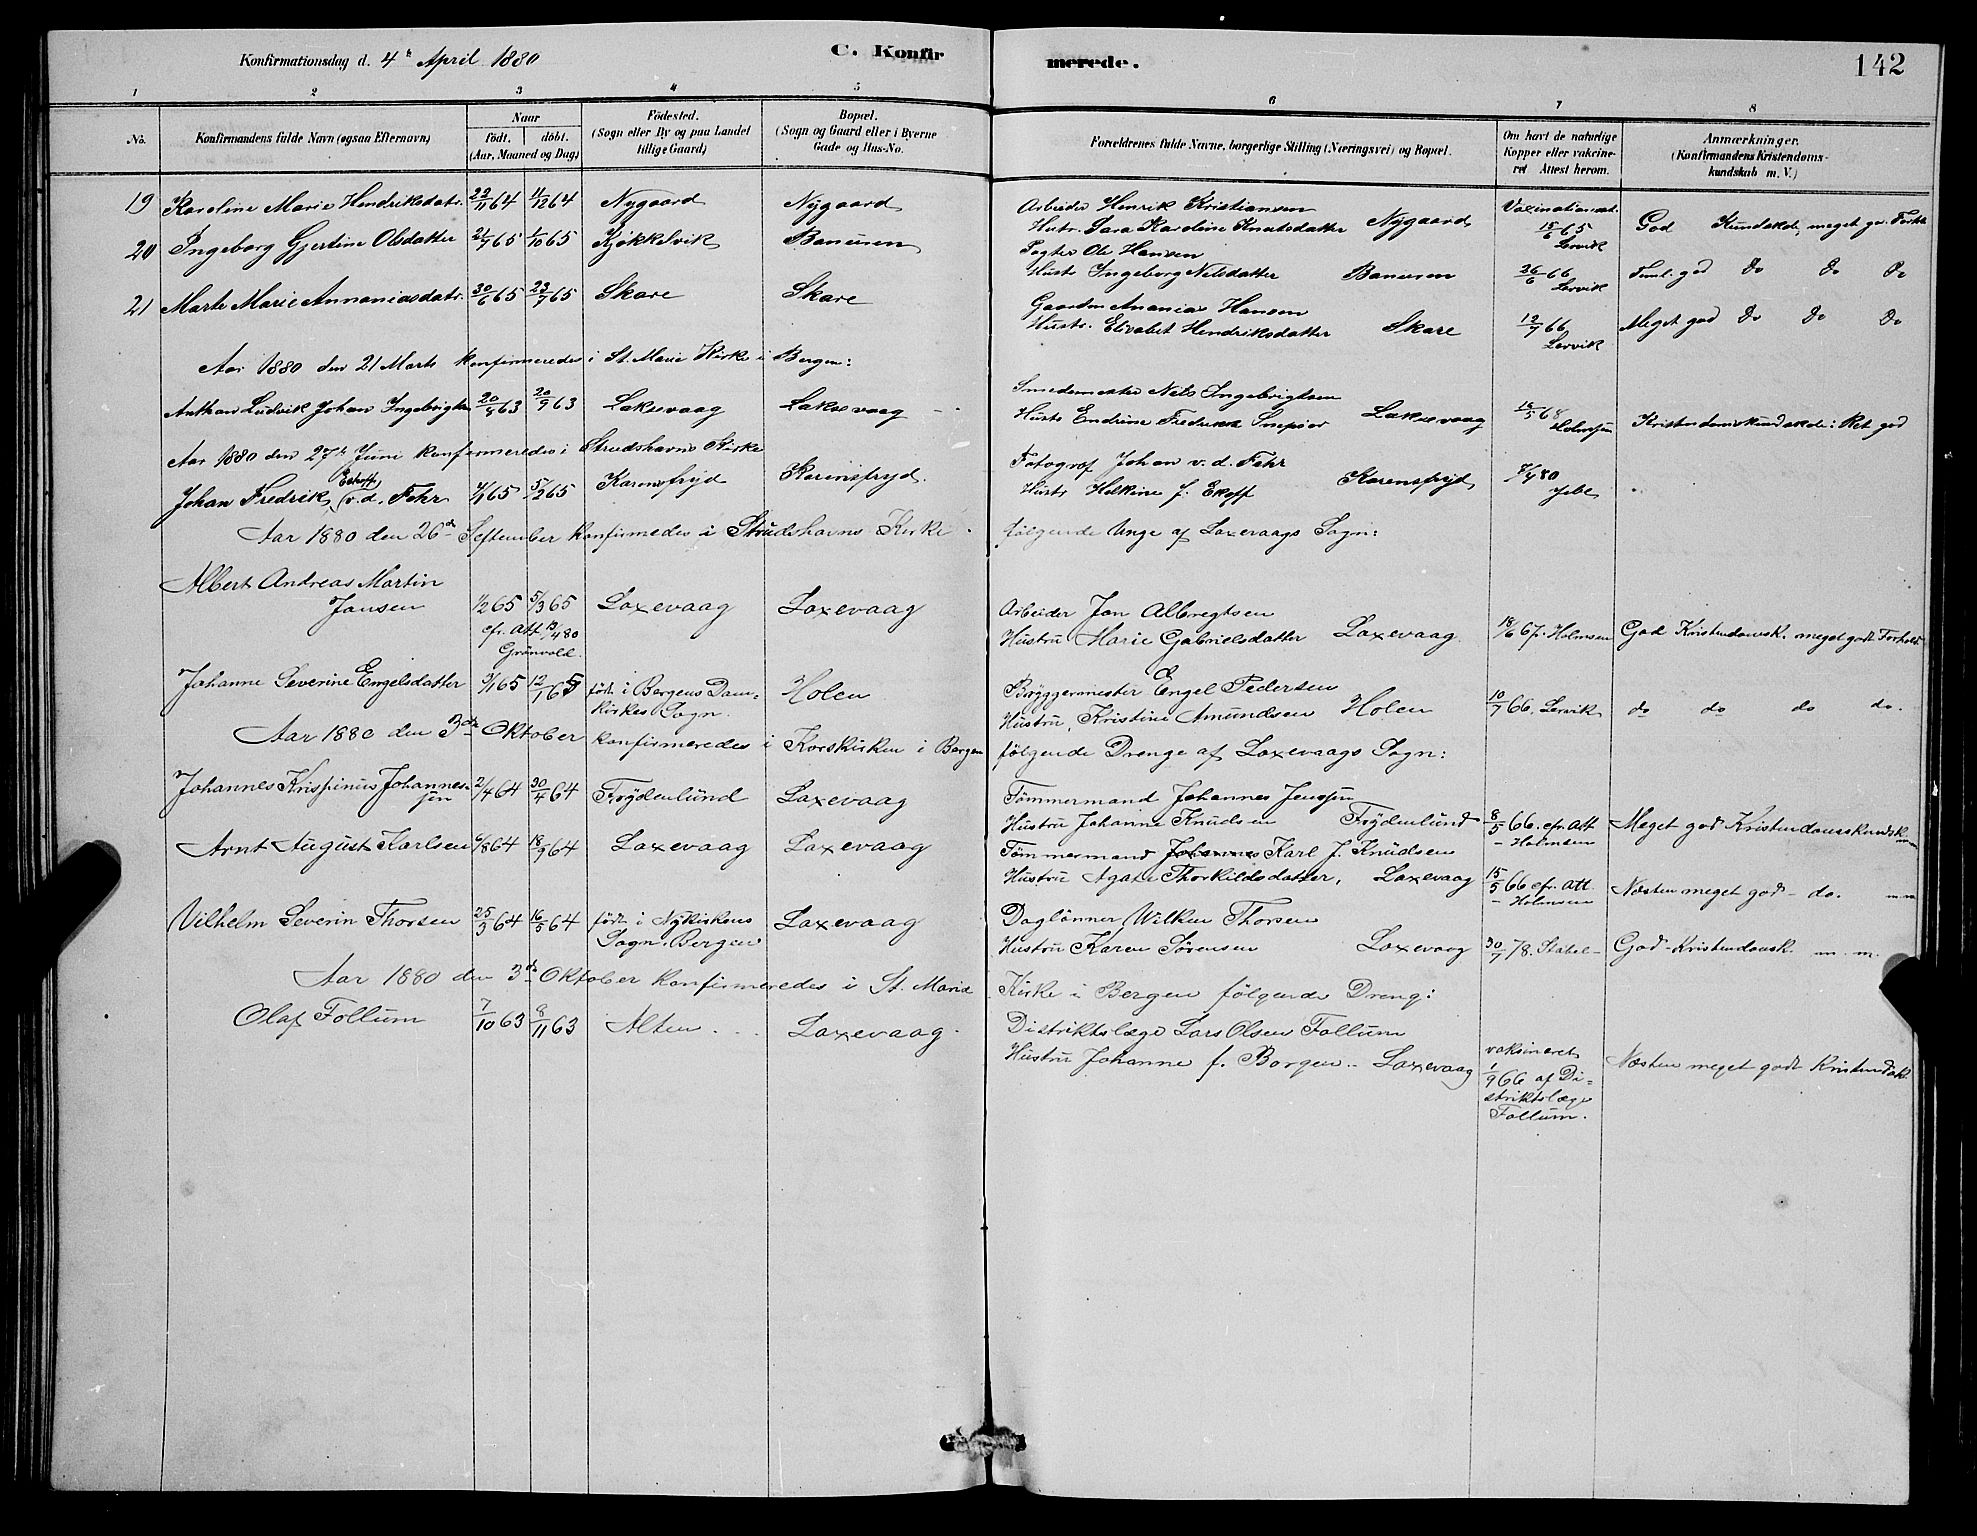 Konfirmationsdag d. 4de April 1880
C. Konfir
merede.
142
1 2 3 4 5 6 7 8
No.
Konfirmandens fulde Navn (ogsaa Efternavn)
Naar
födt. döbt.
(Aar, Maaned og Dag)
Födested.
(Sogn eller By og paa Landet
tillige Gaard)
Bopæl.
(Sogn og Gaard eller i Byerne
Gade og Hus-No.
Forældrenes fulde Navne, borgerlige Stilling (Næringsvei) og Bopæl.
Om havt de naturlige
Kopper eller vakcine-
ret Attest herom.
Anmærkninger.
(Konfirmandens Kristendoms-
kundskab m. V.)
19 Karoline Marie Hendriksdatr. 22/11 64 11/12 64 Nygaard Nygaard
Arbeider Henrik Kristiansen
Hustr. Sara Karoline Knutsdatter Nygaard
Vaxinationsat. 15/6 65 Lervik
God Kundskab, meget go. Forh.
20 Ingeborg Gjertine Olsdatter 21/9 65 1/10 65 Kjøkkelvik Baneren
Pagter Ole Hansen
Hustr Ingeborg Nilsdatter Baneren
26/6 66 Lervik
Teml. god Do Do Do
21 Marte Marie Annaniasdatr. 30/6 65 23/7 65 Skare Skare
Gaardm Ananias Hansen
Hustr. Elisabet Hendriksdatter Skare
12/7 66 Lervik
Meget god Do Do Do
Aar 1880 den 21 Marts konfirmeredes i St. Marie Kirke i Bergen:
Anthon Ludvik Johan Ingebrigtsen 20/8 63 20/9 63 Laksevaag Laksevaag
Smedemester Nils Ingebrigtsen
Hustr Endrine Fredrikke Laksevaag
18/5 68 Holmsen
Kristendomskundskab: Ret god
Aar 1880 den 27de Juni konfirmeredes i Strudshavns Kirke
Ekhoff
Johan Fredrik (v. d. Fehr 4/1 65 5/2 65 Karensfryd Karensfryd.
Fotograf Johan v. d. Fehr
Hustr Helkine f. Ekoff Karensfryd
Aar 1880 den 26de September konfirmedes i Strudshavns Kirke
følgende Unge af Laxevaags Sogn:
Albert Andreas Martin
Jansen 1/2 65 5/3 65 Laxevaag Laxevaag
cfr. Att 13/4 80
Grönvold.
Arbeider Jan Albregtsen
Hustru Marie Gabrielsdatter Laxevaag
18/6 67. Holmsen God Kristendomsk. meget godt Forhold.
Johanne Severine Engelsdatter 3/1 65 12/1 65 født i Bergens Dom-
kirkes Sogn. Holen
Bryggermester Engel Pedersen
Hustru, Kristine Amundsen Holen
10/7 66. Lervik do do do do.
Aar 1880 den 3die Oktober konfirmeredes i Korskirken i Bergen
følgende Drenge af Laxevaags Sogn:
Johannes Krispinus Johannes-
sen 2/4 64 30/4 64 Frydenlund Laxevaag
Tømmermand Johannes Jenssen
Hustru Johanne Knudsen Frydenlund
8/5 66. cfr. Att - Holmsen
Meget god Kristendomskundsk.
Arnt August Karlsen 6/8 64 18/9 64 Laxevaag Laxevaag
Tømmermand Johannes Karl J. Knudsen
Hustru Agate Thorkildsdatter, Laxevaag
15/5 66 cfr. Att. - Holmsen
Næsten meget god - do. m.m
Vilhelm Severin Thorsen 25/3 64 16/5 64 født i Nykirkens
Sogn. Bergen Laxevaag
Daglönner Wilken Thorsen
Hustru Karen Sørensen Laxevaag
30/7 78. Stabel-
God - Kristendomsk. m. m.
Aar 1880 den 3die Oktober konfirmeredes i St. Marie
Kirke i Bergen følgende Dreng:
Olaf Follum 7/10 63 8/11 63 Alten Laxevaag.
Distriktslæge Lars Olsen Follum
Hustru Johanne f. Borgen - Laxevaag
vaksineret
1/9 66 af Di-
striktslæge
Follum.
Næsten meget godt Kristendsk.